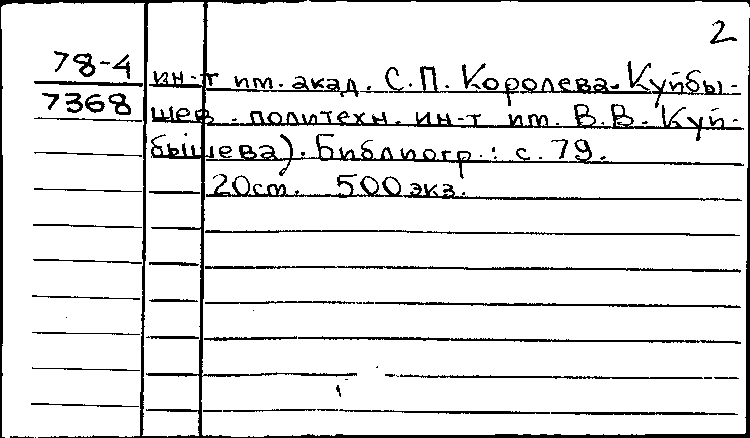 2
78-4 ин-т им. акад. С.П. Королева. Куйбы-
7368 шев. политехн. ин-т им. В.В. Куй-
бышева). Библиогр.: с. 79.
20см. 500 экз.